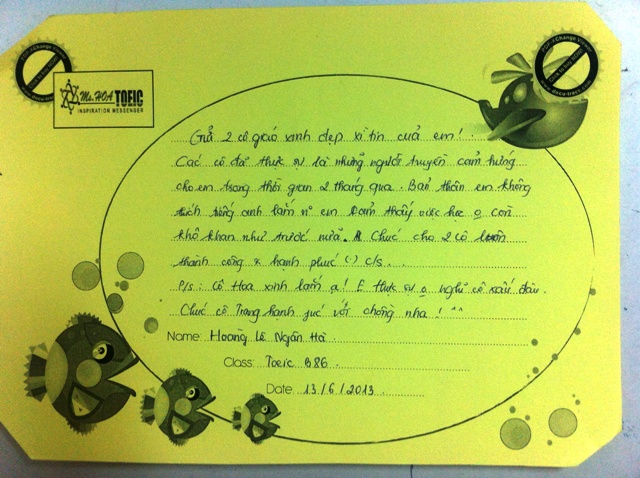 Ms. HOA TOEIC
INSPIRATION MESSENGER
Gửi 2 cô giáo xinh đẹp xì tin của em!
Các cô đã thực sự là những người truyền cảm hứng
cho em trong thời gian 2 tháng qua. Bản thân em không
thích tiếng anh lắm n' em cảm thấy việc học o còn
khô khan như trước nữa. Chúc cho 2 cô luôn
thành công & hạnh phúc (') c/s.
P/s: Cô Hoa xinh lắm ạ! E thực sự o nghĩ cô xấu đâu.
Chúc cô Trang hạnh fúc với chồng nha! ^^
Name: Hoàng Lê Ngân Hà
Class: Toeic B86
Date: 13/6/2013